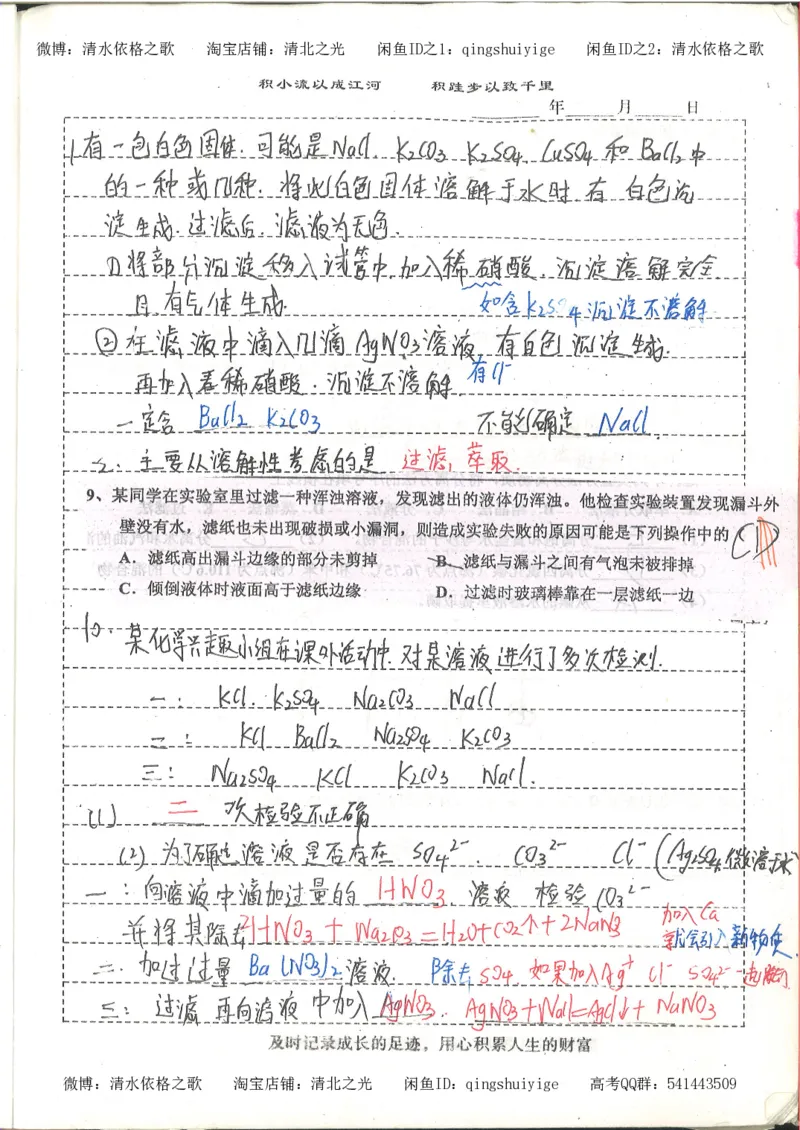 微博：清水依格之歌　淘宝店铺：清北之光　闲鱼ID之1：qingshuiyige　闲鱼ID之2：清水依格之歌
积小流以成江河　积跬步以致千里
年　月　日
1.有一包白色固体.可能是NaCl、K2CO3 K2SO4、CuSO4 和 BaCl2中
的一种或几种.将此白色固体溶解于水时有白色沉
淀生成.过滤后.滤液为无色.
①将部分沉淀移入试管中.加入稀硝酸.沉淀溶解完全
且有气体生成.
如含K2SO4沉淀不溶解
②在滤液中滴入几滴AgNO3溶液.有白色沉淀生成.
有Cl-
再加入看稀硝酸.沉淀不溶解.
一定含 BaCl2 K2CO3　不能确定 NaCl
2.主要从溶解性考虑的是 过滤,萃取.
9、某同学在实验室里过滤一种浑浊溶液，发现滤出的液体仍浑浊。他检查实验装置发现漏斗外
壁没有水，滤纸也未出现破损或小漏洞，则造成实验失败的原因可能是下列操作中的（D）
A．滤纸高出漏斗边缘的部分未剪掉　B、滤纸与漏斗之间有气泡未被排掉
C．倾倒液体时液面高于滤纸边缘　D．过滤时玻璃棒靠在一层滤纸一边
10.某化学兴趣小组在课外活动中.对某溶液进行了多次检测.
一：KCl. K2SO4 Na2CO3 NaCl
二：KCl BaCl2 Na2SO4 K2CO3
三：Na2SO4 KCl K2CO3 NaCl.
(1) 二 次检验不正确
(2)为了确定溶液是否存在 SO4²⁻. CO3²⁻ Cl⁻(Ag2SO4微溶于水
一：向溶液中滴加过量的 HNO3 溶液 检验CO3²⁻
并将其除去 2HNO3+Na2CO3=H2O+CO2↑+2NaNO3
加入Ca
就会引入新物质
二.加过过量 Ba(NO3)2溶液. 除去SO4 如果加入Ag⁺ Cl⁻ SO4²⁻一起
三：过滤 再向溶液中加入AgNO3. AgNO3+NaCl=AgCl↓+NaNO3
及时记录成长的足迹，用心积累人生的财富
微博：清水依格之歌　淘宝店铺：清北之光　闲鱼ID：qingshuiyige　高考QQ群：541443509